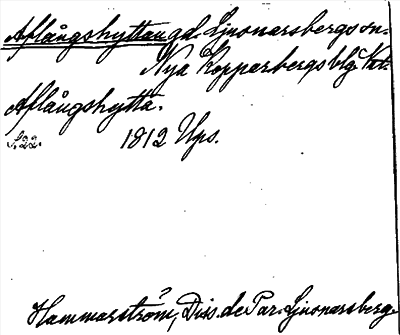 Aflångshyttan gd. Ljusnarsbergs sn.
Nya Kopparbergs blg. Vstm.
Aflångshytta.
1812 Ups.
S. 22.
Hammarström, Diss. de Par. Ljusnarsberg.